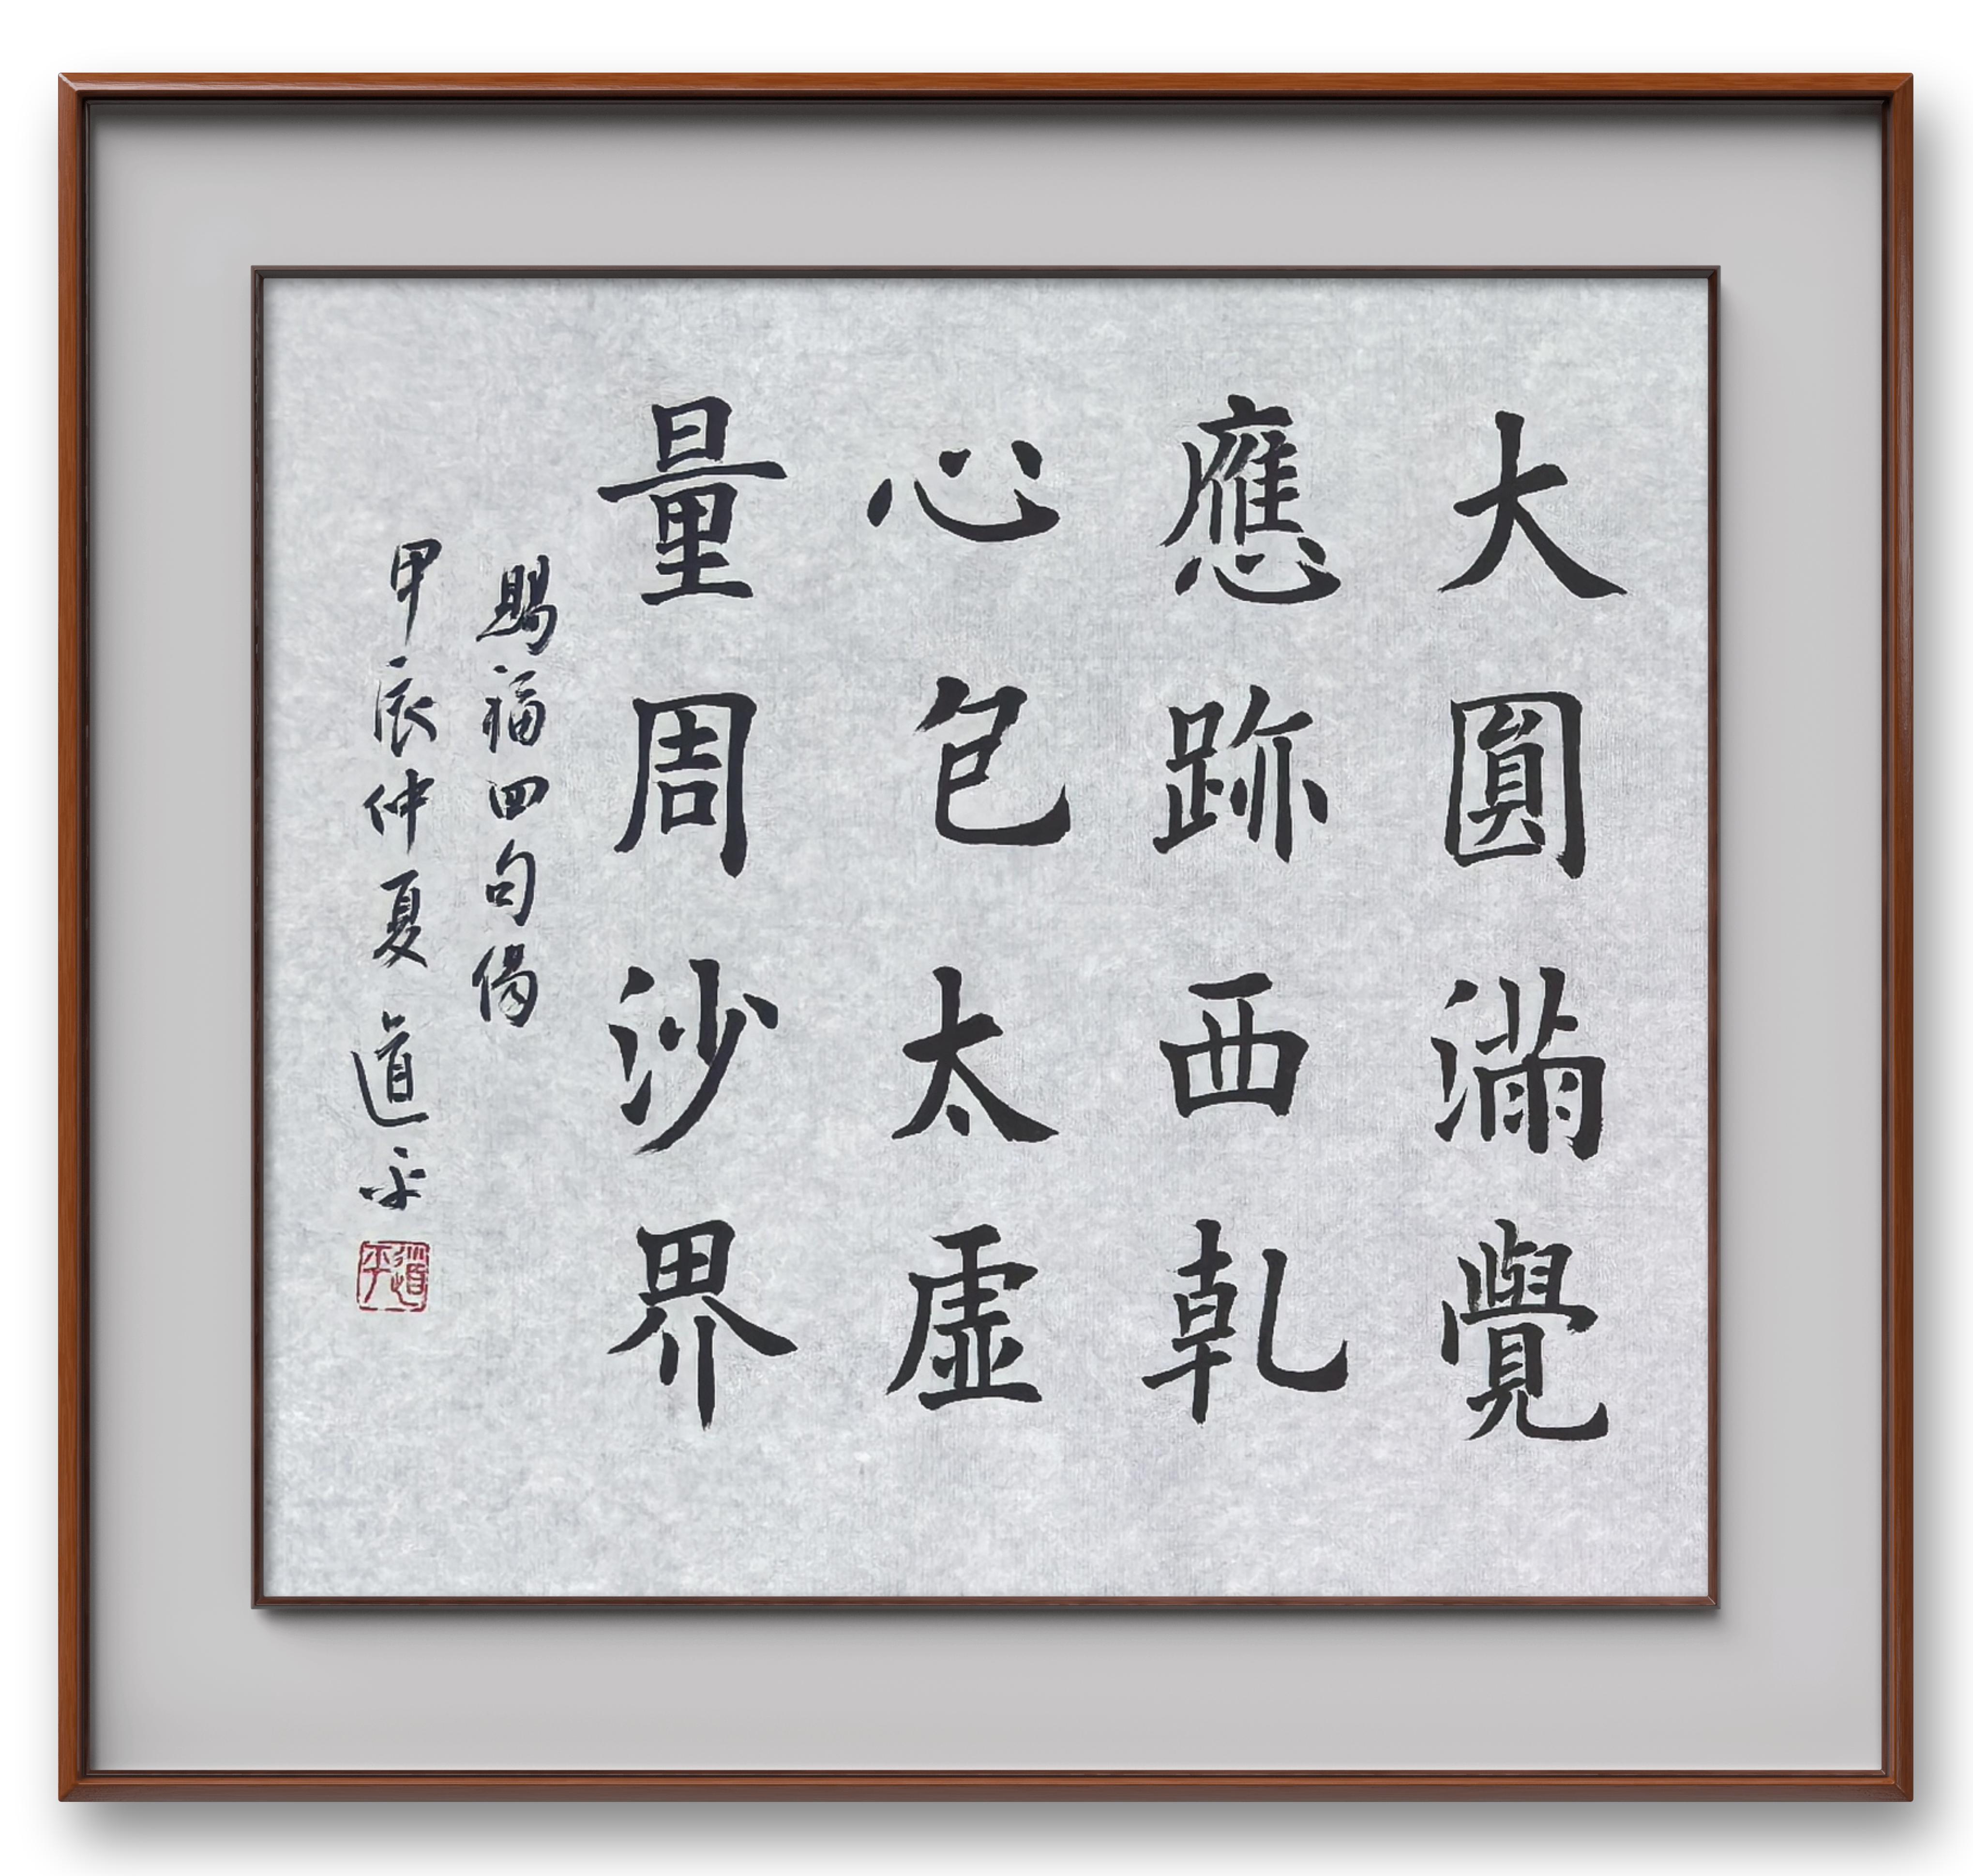 大圓滿覺
應跡西乾
心包太虛
量周沙界
賜福四句偈
甲辰仲夏道平
道平